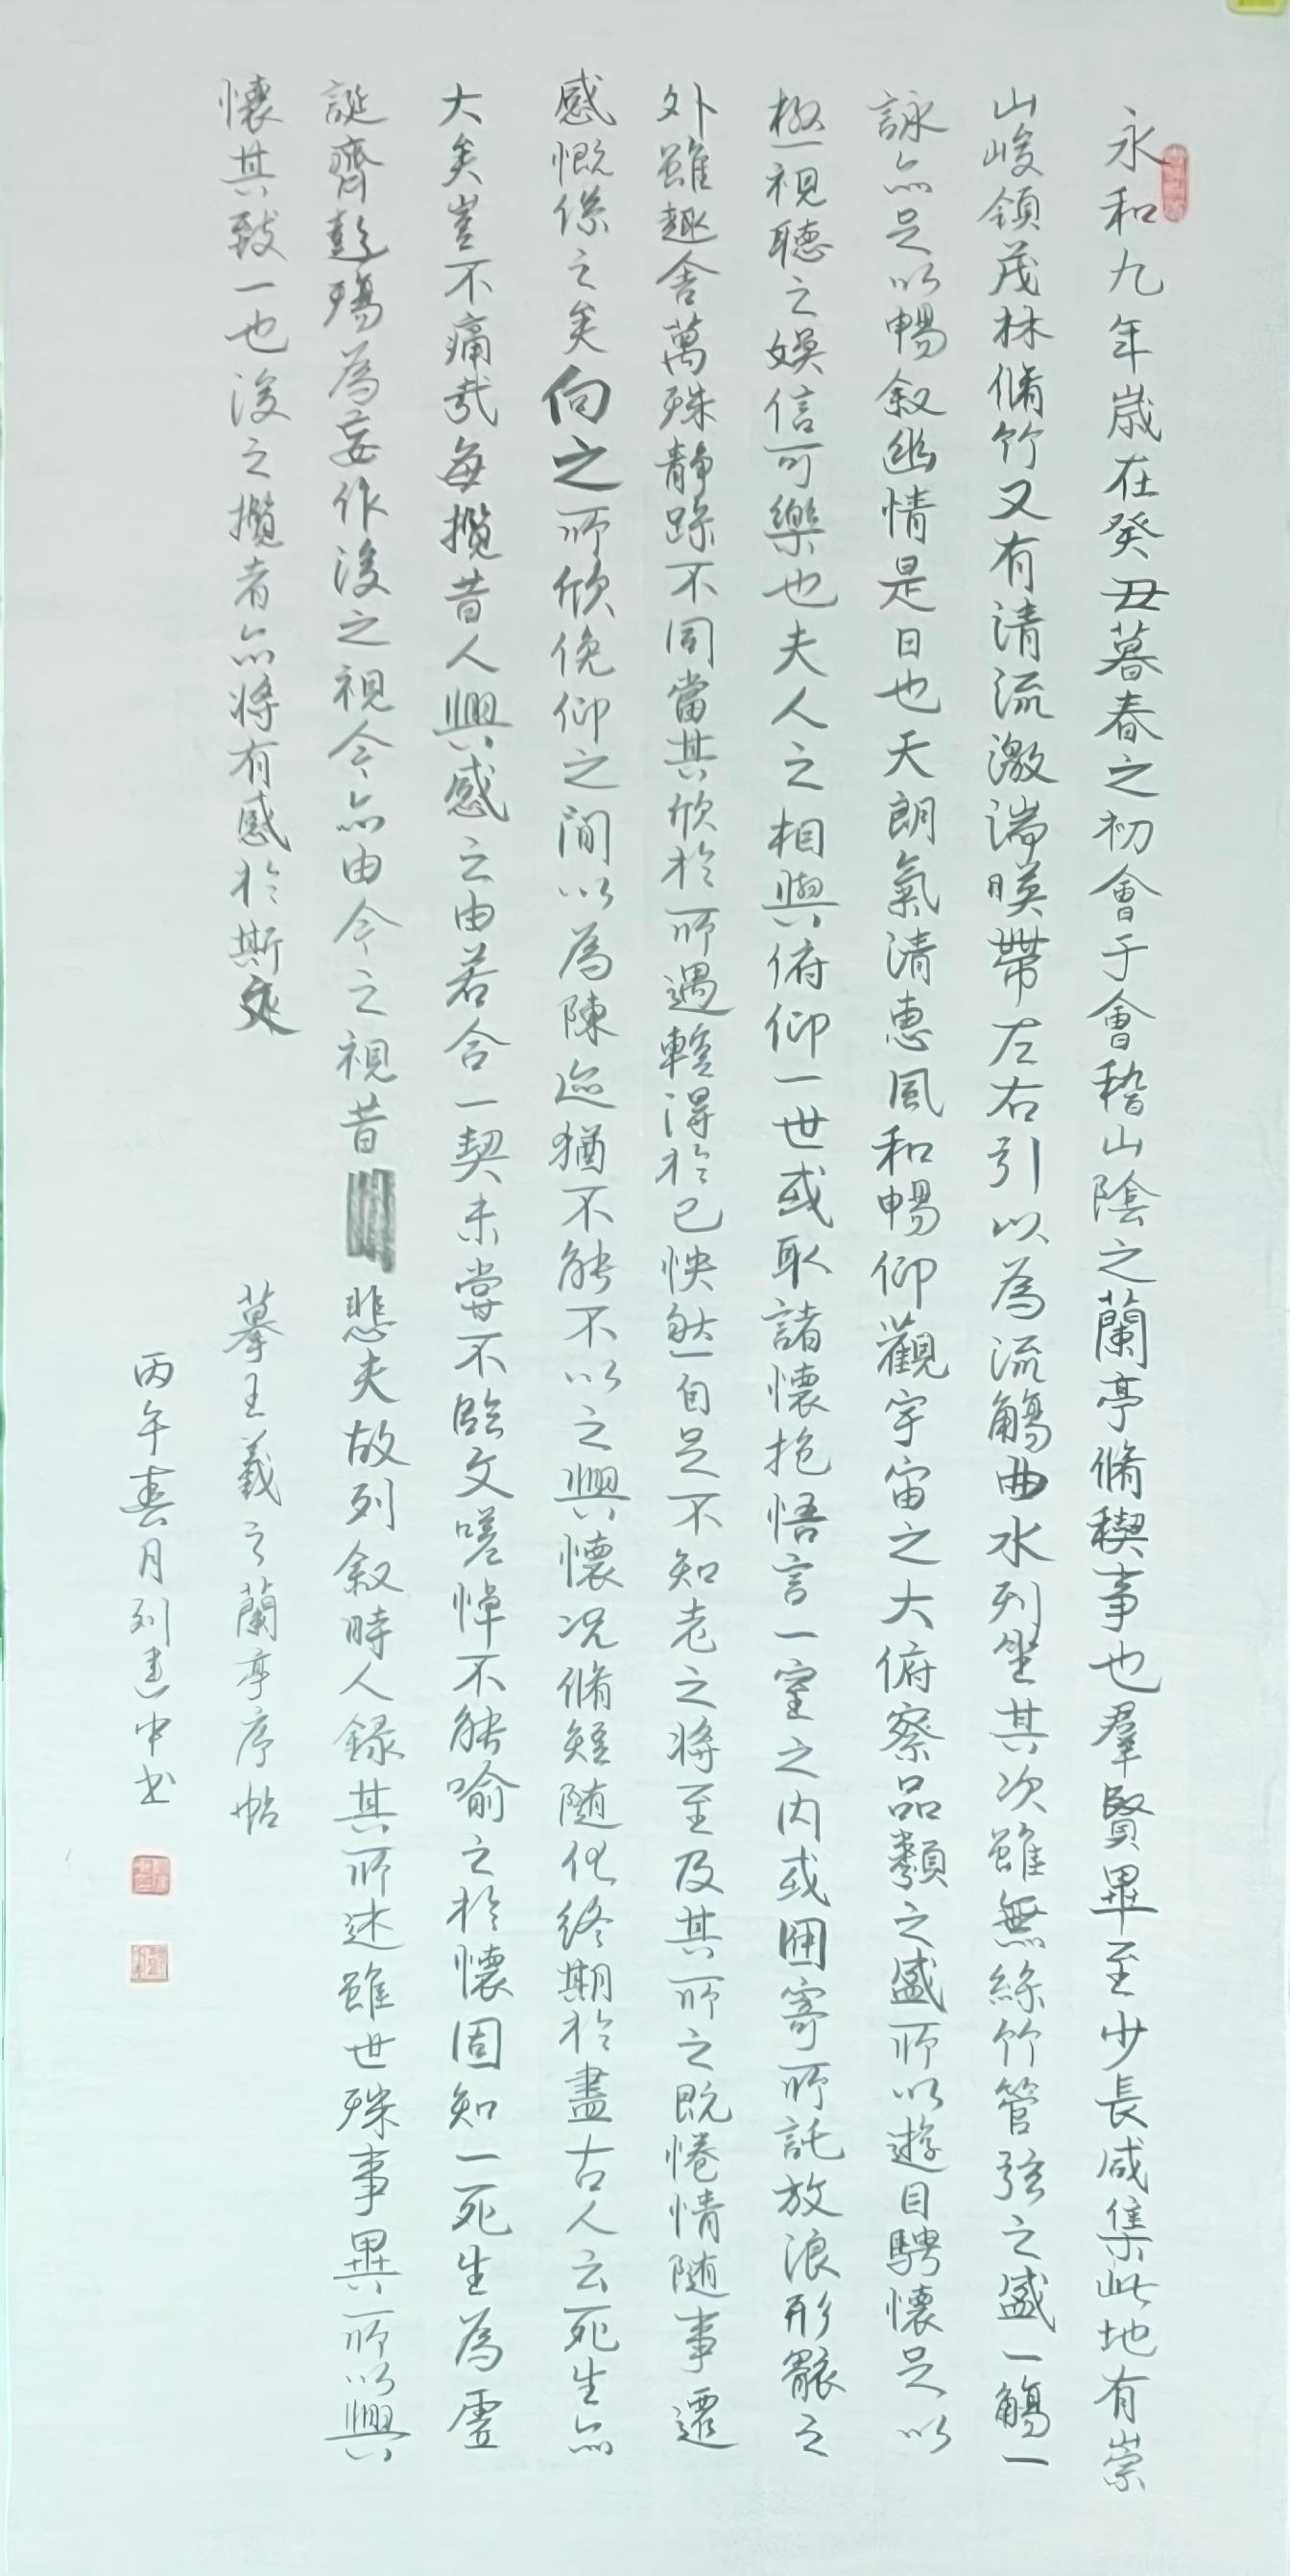 永和九年歲在癸丑暮春之初會于會稽山陰之蘭亭脩稧事也羣賢畢至少長咸集此地有崇
山峻領茂林脩竹又有清流激湍暎帶左右引以為流觴曲水列坐其次雖無絲竹管弦之盛一觴一
詠亦足以暢叙幽情是日也天朗氣清惠風和暢仰觀宇宙之大俯察品類之盛所以遊目騁懷足以
極視聽之娛信可樂也夫人之相與俯仰一世或取諸懷抱悟言一室之內或因寄所託放浪形骸之
外雖趣舍萬殊靜躁不同當其欣於所遇輊得於己怏然自足不知老之將至及其所之既惓情隨事遷
感慨係之矣向之所欣俛仰之間以為陳迹猶不能不以之興懷况脩短隨化終期於盡古人云死生亦
大矣豈不痛哉每攬昔人興感之由若合一契未嘗不臨文嗟悼不能喻之於懷固知一死生為虛
誕齊彭殤為妄作後之視今亦由今之視昔悲夫故列叙時人錄其所述雖世殊事異所以興
懷其致一也後之攬者亦將有感於斯文
摹王羲之蘭亭序帖
丙午春月列建中书